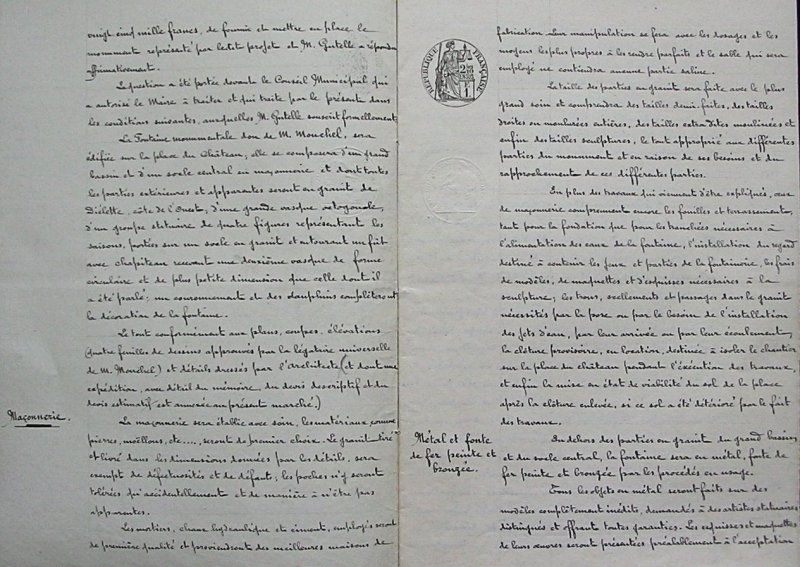 vingt cinq mille francs, de fournir et mettre en place le
monument représenté par ledit projet et M. Gutelle a répondu
affirmativement.
La question a été portée devant le Conseil Municipal qui
a autorisé le Maire à traiter et qui traite par le présent dans
les conditions suivantes, auxquelles M. Gutelle souscrit formellement.
La Fontaine monumentale don de M. Mouchel, sera
édifiée sur la place du Château; elle se composera d'un grand
bassin et d'un socle central en maçonnerie et dont toutes
les parties extérieures et apparentes seront en granit de
Diélette, côte de l'Ouest, d'une grande vasque octogonale,
d'un groupe statuaire de quatre figures représentant les
saisons, portées sur un socle en granit et entourant un fût
avec chapiteau recevant une deuxième vasque de forme
circulaire et de plus petite dimension que celle dont il
a été parlé; un couronnement et des dauphins complèteront
la décoration de la fontaine.
Le tout conformément aux plans, coupes, élévations
(quatre feuilles de dessins approuvés par la légataire universelle
de M. Mouchel) et détails dressés par l'architecte (et dont une
expédition, avec détail du mémoire, du devis descriptif et du
devis estimatif est annexée au présent marché.)
Maçonnerie.
La maçonnerie sera établie avec soin, les matériaux, comme
pierres, moëllons, etc...., seront de premier choix. Le granit tiré
et livré dans les dimensions données par les détails, sera
exempt de défectuosités et de défauts; les poches n'y seront
tolérées qu'accidentellement et de manière à n'être pas
apparentes.
Les mortiers, chaux hydraulique et ciment, employés seront
de première qualité et proviendront des meilleures maisons de
RÉPUBLIQUE FRANÇAISE
fabrication. Leur manipulation se fera avec les dosages et les
moyens les plus propres à les rendre parfaits et le sable qui sera
employé ne contiendra aucune partie saline.
La taille des parties en granit sera faite avec le plus
grand soin et comprendra des tailles demi-faites, des tailles
droites ou moulurées entières, des tailles extradites moulinées et
enfin des tailles sculptures, le tout approprié aux différentes
parties du monument et en raison de ses besoins et du
rapprochement de ces différentes parties.
En plus des travaux qui viennent d'être expliqués, ceux
de maçonnerie comprennent encore les fouilles et terrassements,
tant pour la fondation que pour les tranchées nécessaires à
l'alimentation des eaux de la fontaine, l'installation du regard
destiné à contenir les jeux et parties de la fontainerie, les frais
de modèles, de maquettes et d'esquisses nécessaires à la
sculpture; les trous, scellements et passages dans le granit
nécessités par la pose ou par le besoin de l'installation
des jets d'eau, par leur arrivée ou par leur écoulement,
la clôture provisoire, en location, destinée à isoler le chantier
sur la place du château pendant l'exécution des travaux,
et enfin la mise en état de viabilité du sol de la place
après la clôture enlevée, si ce sol a été détérioré par le fait
des travaux.
Métal et fonte
de fer peinte et
bronzée.
En dehors des parties en granit du grand bassin
et du socle central, la fontaine sera en métal, fonte de
fer peinte et bronzée par les procédés en usage.
Tous les objets en métal seront faits sur des
modèles complètement inédits, demandés à des artistes statuaires
distingués et offrant toutes garanties. Les esquisses et maquettes
de leurs œuvres seront présentées préalablement à l'acceptation